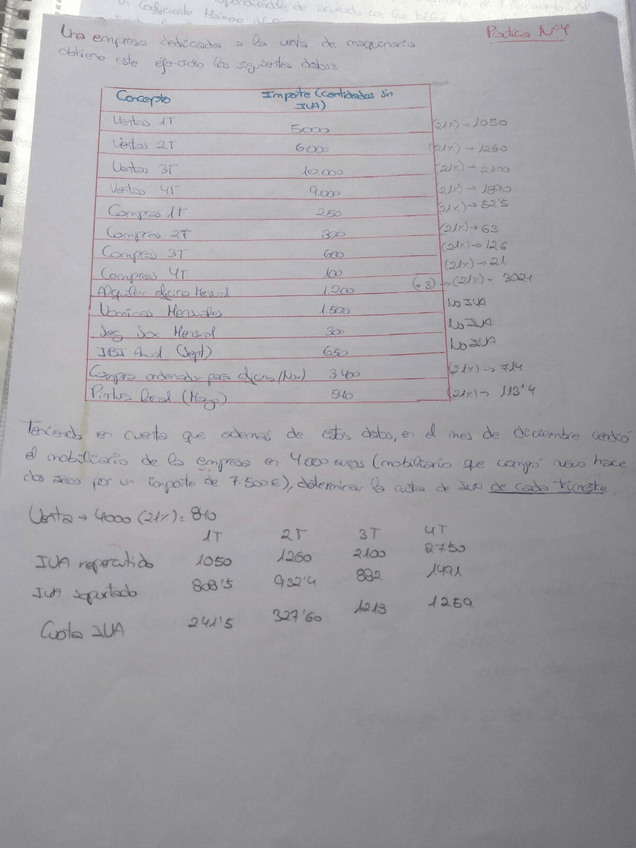 Práctica Nº4
Una empresa dedicada a la venta de maquinaria
obtiene este ejercicio los siguientes datos:
Concepto Importe (cantidades sin IVA)
Ventas 1T 5000 (21%) → 1050
Ventas 2T 6000 (21%) → 1260
Ventas 3T 10.000 (21%) → 2100
Ventas 4T 9.000 (21%) → 1890
Compras 1T 250 (21%) → 52'5
Compras 2T 300 (21%) → 63
Compras 3T 600 (21%) → 126
Compras 4T 100 (21%) → 21
Alquiler oficina Mensual 1.200 (21%) =
Nóminas Mensuales 1.500 No IVA
Seg Soc Mensual 300 No IVA
IBI Anual (Sept) 650 No IVA
Compra ordenador para oficina (Nov) 3.400 (21%) → 714
Pintura local (Mayo) 540 (21%) → 113'4
Teniendo en cuenta que además de estos datos, en el mes de diciembre vendió
el mobiliario de la empresa en 4000 euros (mobiliario que compró nuevo hace
dos años por un importe de 7.500€), determinar la cuota de IVA de cada trimestre.
Venta → 4000 (21%) = 840
1T 2T 3T 4T
IVA repercutido 1050 1260 2100 2750
IVA soportado 808'5 932'4 882 1491
Cuota IVA 241'5 327'60 1218 1259